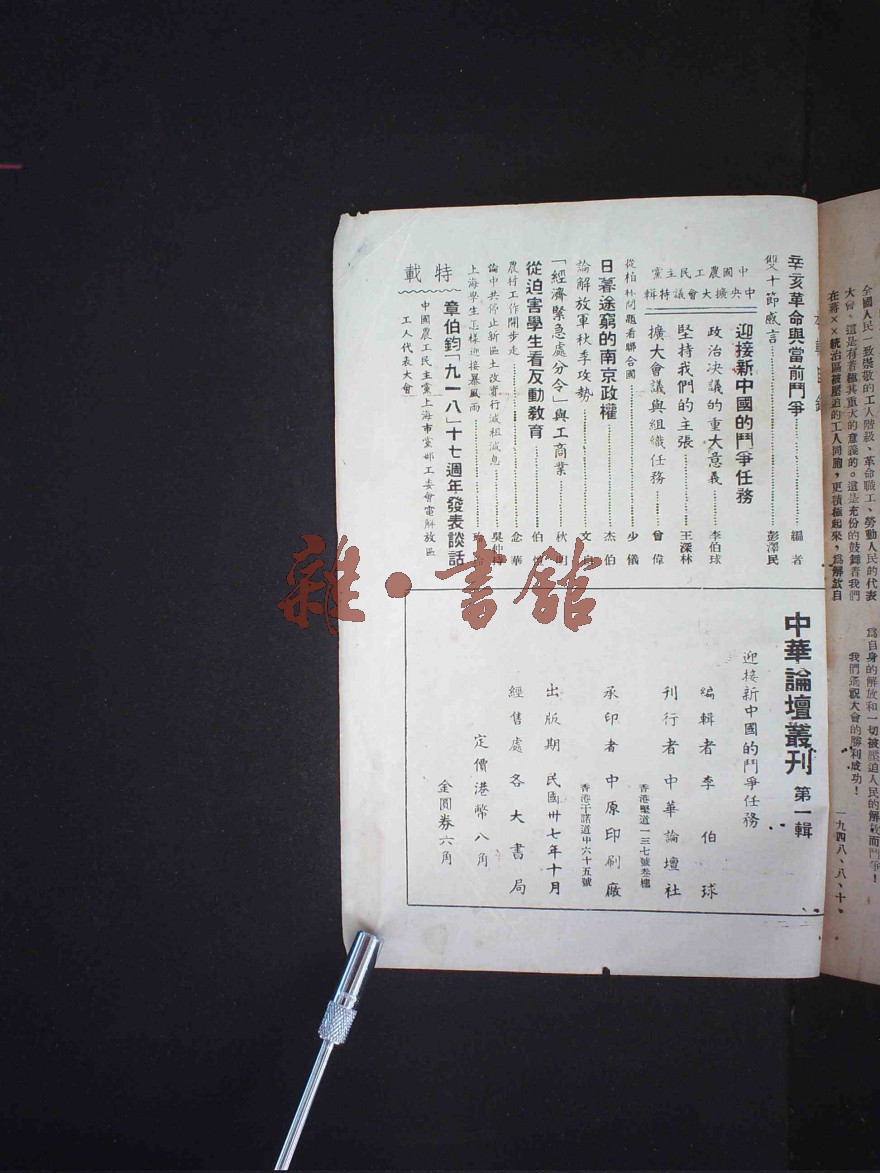 全國人民一致崇敬的工人階級、革命職工、勞動人民的代表
大會，這是有着極其重大的意義的。這是充份的鼓舞着我們
在蔣××統治區被壓迫的工人同胞，更積極起來，爲解放自
爲自身的解放和一切被壓迫人民的解放而鬥爭！
我們遙祝大會的勝利成功！
一九四八、八、十、
辛亥革命與當前鬥爭……編者
雙十節感言……彭澤民
中國農工民主黨
中央擴大會議特輯
迎接新中國的鬥爭任務
政治決議的重大意義……李伯球
堅持我們的主張……王深林
擴大會議與組織任務……曾偉
從柏林問題看聯合國……少儀
日暮途窮的南京政權……杰伯
論解放軍秋季攻勢……文
「經濟緊急處分令」與工商業……秋明
從迫害學生看反動教育……伯
農村工作開步走……念華
論中共停止新區土改實行減租減息……吳仲
上海學生怎樣迎接暴風雨……
特載
章伯鈞「九一八」十七週年發表談話
中國農工民主黨上海市黨部工委會電解放區
工人代表大會
中華論壇叢刊 第一輯
迎接新中國的鬥爭任務
編輯者 李伯球
刊行者 中華論壇社
香港堅道一三七號叁樓
承印者 中原印刷廠
香港干諾道中六十五號
出版期 民國卅七年十月
經售處 各大書局
定價港幣八角
金圓券六角
雜·書館